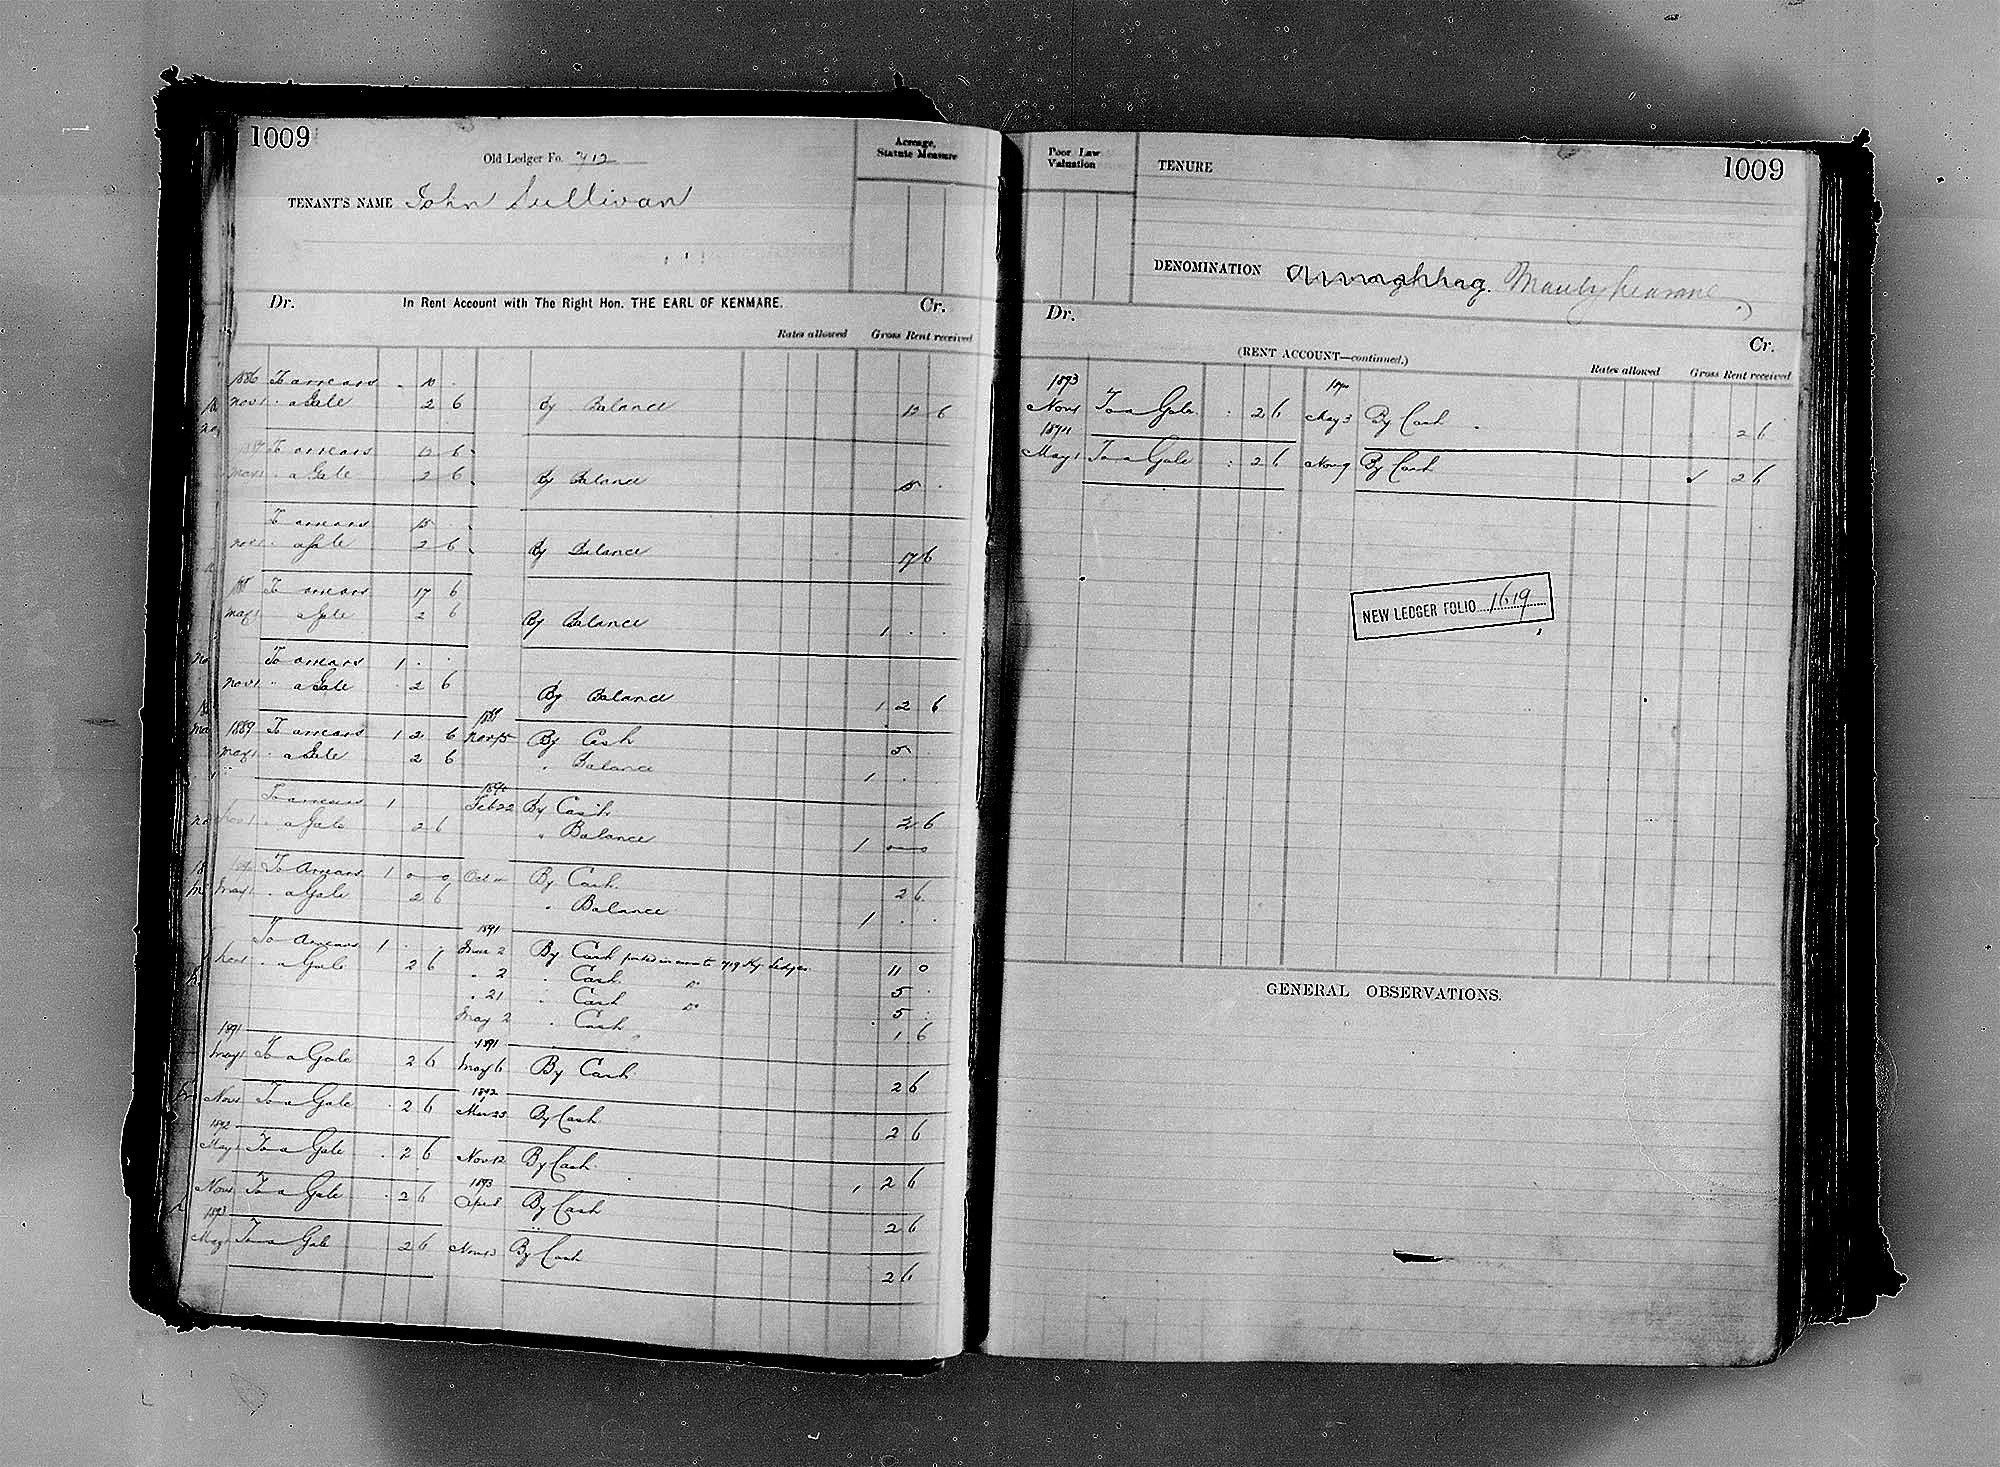 1009
Old Ledger Fo. 712
Acreage,
Statute Measure
TENANT'S NAME John Sullivan
Dr. In Rent Account with The Right Hon. THE EARL OF KENMARE. Cr.
Rates allowed Gross Rent received
1886 To arrears . 10 .
Nov 1 " a Gale 2 6 By Balance 12 6
1887 To arrears 12 6
May 1 " a Gale 2 6 By Balance 15 .
To arrears 15 .
Nov 1 " a Gale 2 6 By Balance 17 6
188 To arrears 17 6
May 1 a Gale 2 6 By Balance 1 . .
To arrears 1 . .
Nov 1 " a Gale . 2 6 By Balance 1 2 6
1889 To arrears 1 2 6 Nov 15 By Cash 5
May 1 " a Gale 2 6 " Balance 1 . .
1890
To arrears 1 Feb 22 By Cash 2 6
Nov 1 " a Gale 2 6 " Balance 1 0 0
1890 To Arrears 1 0 0 Oct By Cash 2 6
May 1 " a Gale 2 6 " Balance 1 . .
1891
To Arrears 1 . . Mar 2 By Cash 719 Ky Ledger 11 0
Nov 1 " a Gale 2 6 " 2 " Cash Do 5 .
" 21 " Cash Do 5 .
May 2 " Cash 1 6
1891 1891
May 1 To a Gale 2 6 May 6 By Cash 2 6
1892
Nov 1 To a Gale . 2 6 Mar 23 By Cash 2 6
1892
May 1 To a Gale . 2 6 Nov 12 By Cash 2 6
1893
Nov 1 To a Gale . 2 6 Apl 8 By Cash 2 6
1893
May 1 To a Gale 2 6 Nov 13 By Cash 2 6
Poor Law
Valuation
TENURE
1009
DENOMINATION Annaghbeg.
Dr.
(RENT ACCOUNT—continued.)
Cr.
Rates allowed Gross Rent received
1893 1894
Nov 1 To a Gale . 2 6 May 3 By Cash 2 6
1894
May 1 To a Gale : 2 6 Nov 9 By Cash ✓ 2 6
NEW LEDGER FOLIO 1619
GENERAL OBSERVATIONS.